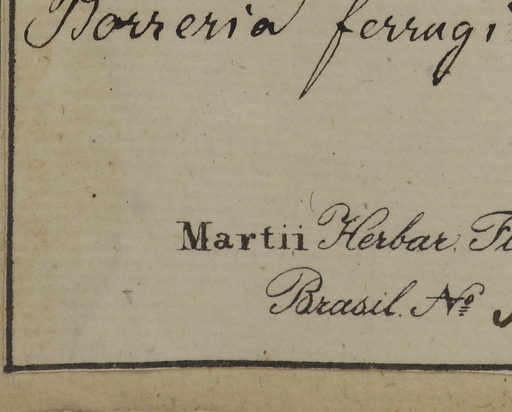 Borreria ferrugi
Martii Herbar. Fl
Brasil. No